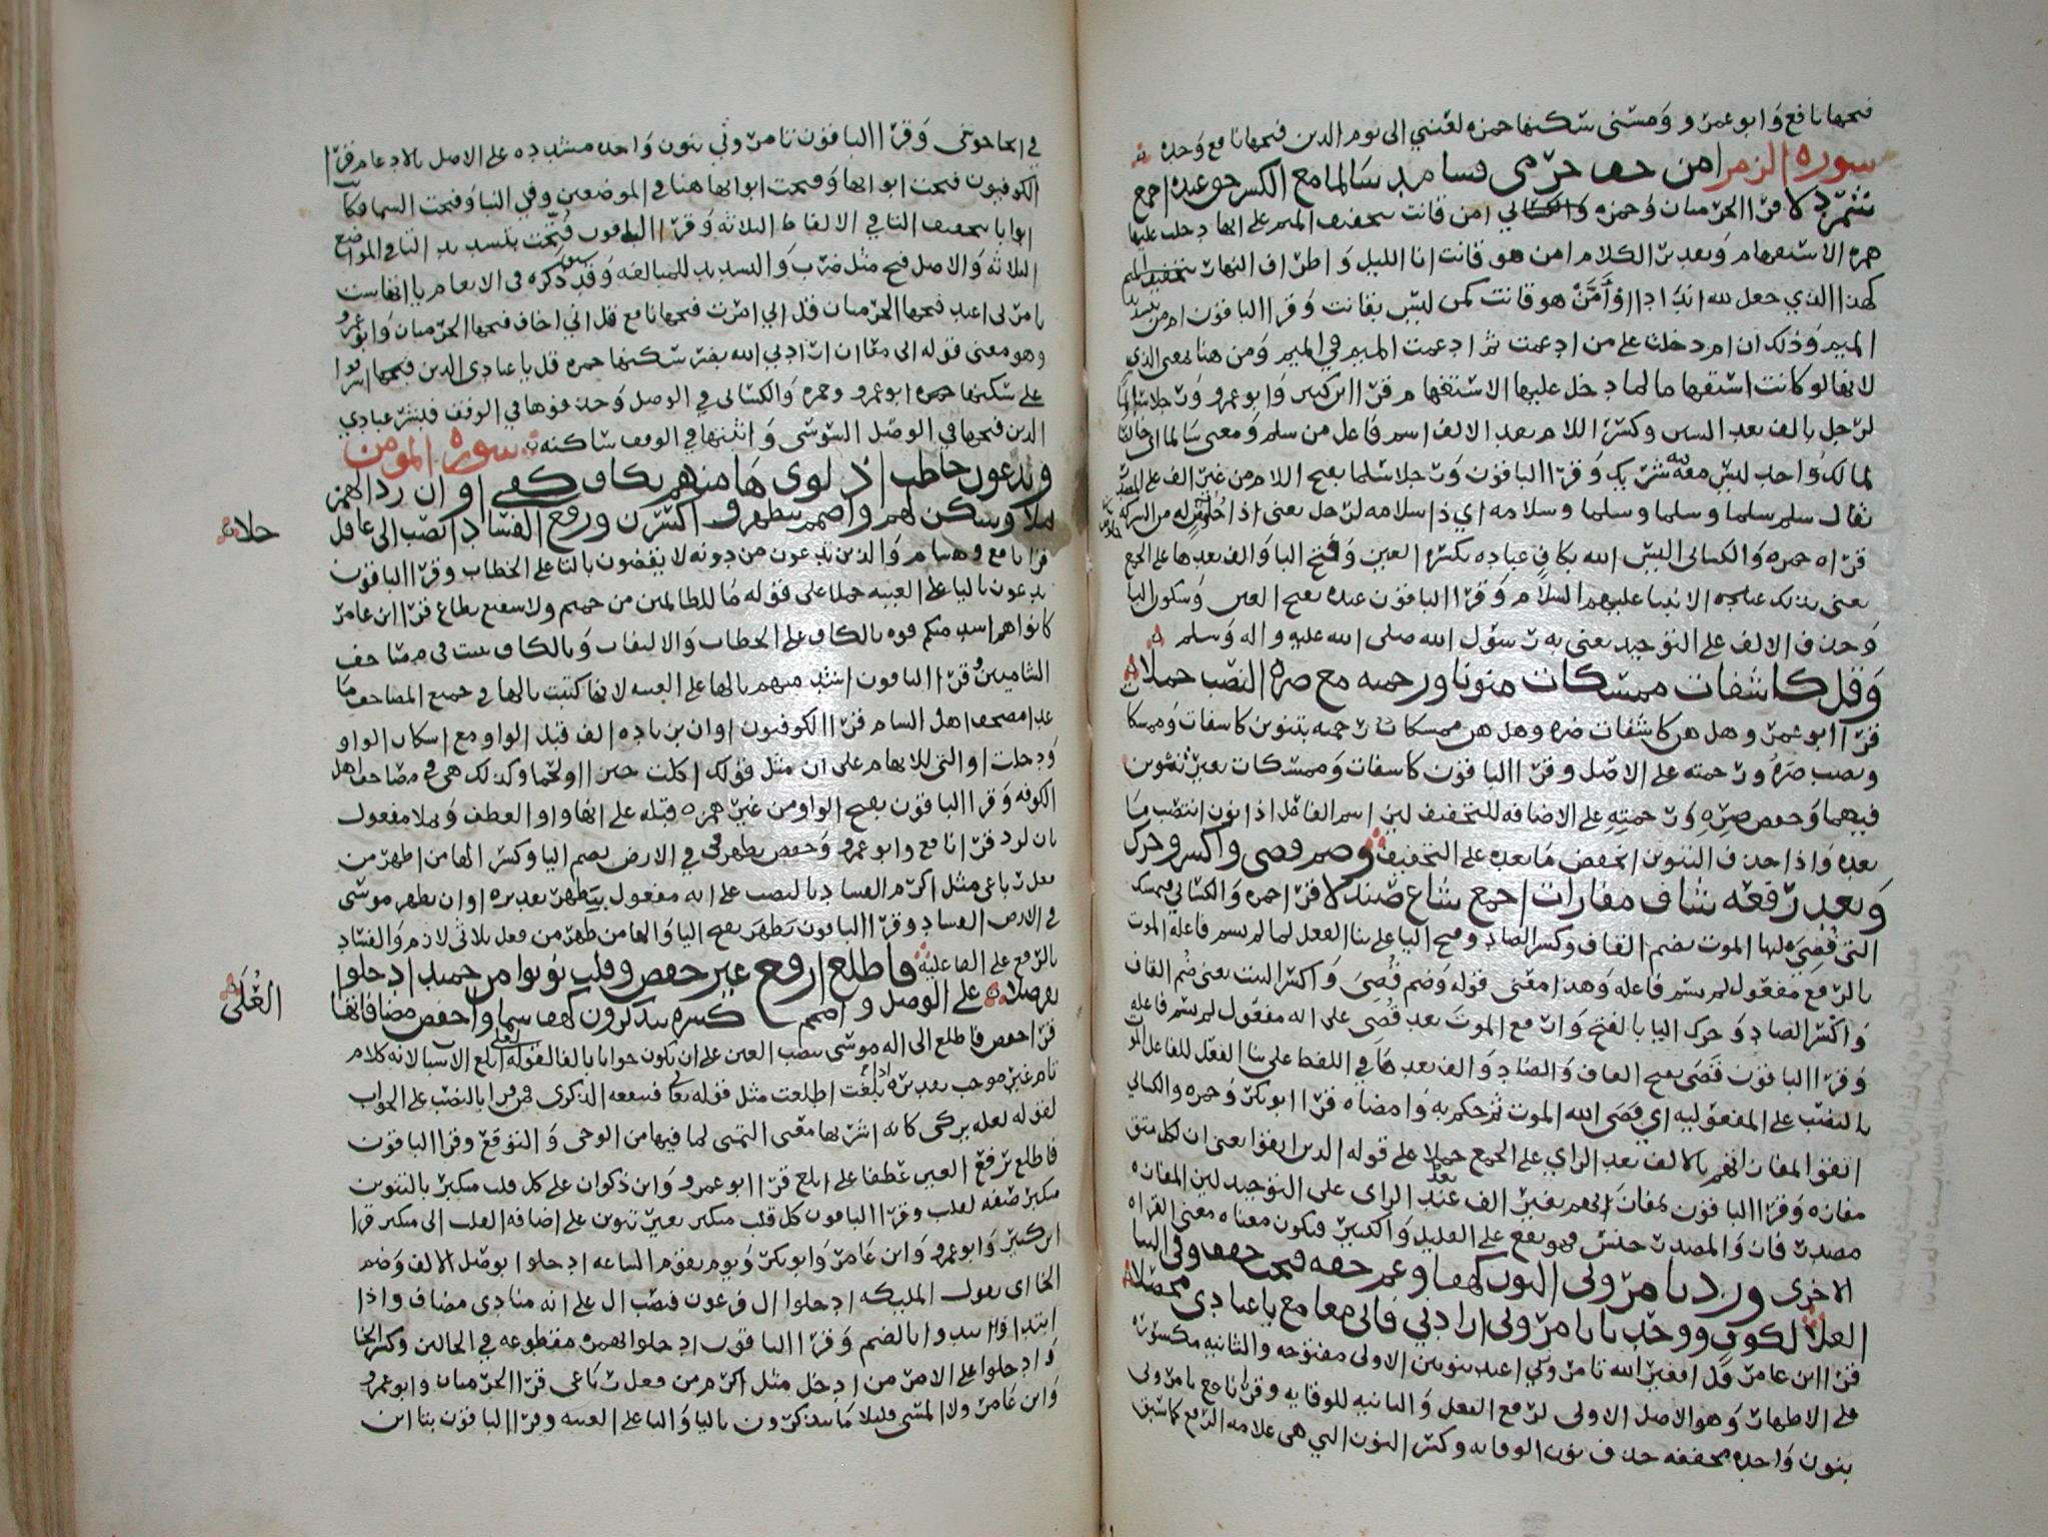 فتحها نافع وابو عمرو ومسني سكنها حمزه لعنتي الى يوم الدين فتحها نافع وحده
سوره الزمر امن خف حرمي فشا مد سالما مع الكسر حق عبده اجمع
شمردلا قرا الحرميان وحمزه امن قانت بتخفيف الميم على انها دخلت عليها
همزه الاستفهام وتقدير الكلام امن هو قانت انا الليل واطراف النهار بتخفيف الميم
كهذا الذي جعل لله اندادا او أمّن هو قانت كمن ليس بقانت وقرا الباقون امن بتشديد
الميم وذلك ان ام دخلت على من ادغمت ثم ادغمت الميم في الميم ومن هنا بمعنى الذي
لانها لو كانت استفهاما لما دخل عليها الاستفهام قرا ابن كثير وابو عمرو ورجلا سالما
لرجل بالف بعد السين وكسر اللام بعد الالف اسم فاعل من سلم ومعنى سالما اي خالصا
لمالك واحد ليس معه شريك وقرا الباقون ورجلا سلما بفتح اللام من غير الف على المصدر
يقال سلم سلما وسلما وسلما وسلامه اي ذا سلامه لرجل يعنى اذا خلص له من الشركه
قراه حمزه والكسائى اليس الله بكاف عباده بكسر العين وفتح الباء والف بعدها على الجمع
يعنى بذلك عباده الانبيا عليهم السلام وقرا الباقون عبده بفتح العين وسكون الباء
وحذف الالف على التوحيد يعنى به رسول الله صلى الله عليه واله وسلم
وقل كاشفات ممسكات منونا ورحمته مع ضره النصب حملا
قرا ابو عمرو هل هن كاشفات ضره وهل هن ممسكات رحمته بتنوين كاشفات وممسكات
ونصب ضره ورحمته على الاصل وقرا الباقون كاشفات وممسكات بغير تنوين
فيهما وخفض ضره ورحمته على الاضافه للتخفيف لين اسم الفاعل اذا نون انتصب ما
بعده واذا حذف التنوين انخفض ما بعده على التخفيف وضم قضى واكسر وحرك
وبعد رفعه شاف مفازات اجمع شاع صندلا قرا حمزه والكسائي فيمسك
التي قُضِيَ عليها الموت بضم القاف وكسر الضاد وفتح الياء على بنا الفعل لما لم يسم فاعله الموت
بالرفع مفعول لم يسم فاعله وهذا معنى قوله وضم قُضِيَ واكسر البيت يعنى ضم القاف
واكسر الضاد وحرك اليا بالفتح وارفع الموت بعد قضى على انه مفعول لم يسم فاعله
وقرا الباقون قضى بفتح القاف والضاد والف بعدها في اللفظ على بنا الفعل للفاعل الموت
بالنصب على المفعوليه اي قضى الله الموت ثم حكم به وامضاه قرا ابو بكر وحمزه والكسائي
اتقوا بمفازاتهم بالالف بعد الزاي على الجمع حملا على قوله الذين اتقوا يعنى ان لكل متق
مفازه وقرا الباقون بمفازتهم بغير الف بعد الزاى على التوحيد لين المفازه
مصدر فاز والمصدر جنس فهو يقع على القليل والكثير فيكون معناه معنى القراه
الاخرى وزد تامروني النون كهفا وعم خفه فتحت خفف وفي النبا
العلا لكوف وخذ يا تامروني ارادني فاني معا مع يا عبادى محصلا
قرا ابن عامر قل افغير الله تامرونني اعبد بنونين الاولى مفتوحه والثانيه مكسوره
على الاظهار وهو الاصل الاولى لرفع الفعل والثانيه للوقايه وقرا نافع تامروني
بنون واحده مخففه حذف نون الوقايه وكسر النون التي هى علامه الرفع كما سبق
في اتحاجوني وقرا الباقون تامروني بنون واحده مشدده على الاصل بالادغام قرا
الكوفيون فتحت ابوابها وفتحت ابوابها هنا في الموضعين وفي النبا وفتحت السما فكانت
ابوابا بتخفيف التا في الالفاظ الثلاثه وقرا الباقون فُتّحت بتشديد التا في المواضع
الثلاثه والاصل فتح مثل ضرب والتشديد للمبالغه وقد سبق ذكره في الانعام يا اتها ست
تامروني اعبد فتحها الحرميان قل اني امرت فتحها نافع قل اني اخاف فتحها الحرميان وابو عمرو
وهو معنى قوله انى معا ان ارادني الله بضر سكنها حمزه قل يا عبادى الذين اسرفوا
على سكنها ابو عمرو وحمزه والكسائى في الوصل وحذفوها في الوقف فبشر عبادي
الذين فتحها في الوصل السوسى واثبتها في الوقف ساكنه سوره المومن
ويدعون خاطب اذ لوى هاء منهم بكاف كفى او ان زد الهمز
ثملا وسكن لهم واضمم بيظهر واكسرن ورفع الفساد انصب الى عاقل
حلا
قرا نافع وهشام والذين تدعون من دونه لا يقضون بالتا على الخطاب وقرا الباقون
يدعون باليا على الغيبه حملا على قوله ما للظالمين من حميم ولا شفيع يطاع قرا ابن عامر
كانوا هم اشد منكم قوه بالكاف على الخطاب والالتفات وبالكاف ثبت في مصاحف
الشاميين وقرا الباقون اشد منهم بالها على الغيبه لانها كتبت بالها في جميع المصاحف ما
عدا مصحف اهل الشام قرا الكوفيون او ان بزياده الف قبل الواو مع اسكان الواو
ودخلت او التى للابهام على ان مثل قولك اكلت خبزا او لحما وكذلك هى في مصاحف اهل
الكوفه وقرا الباقون بفتح الواو من غير همزه قبله على انها واو العطف وثملا مفعول
بان لزد قرا نافع وابو عمرو وحفص يظهر في الارض بضم اليا وكسر الها من اظهر من
فعل رباعى مثل اكرم الفساد بالنصب على انه مفعول بيظهر تقديره او ان يظهر موسى
في الارض الفساد وقرا الباقون يَظهَر بفتح اليا والها من ظهر من فعل ثلاثى لازم والفساد
بالرفع على الفاعليه فاطلع ارفع غير حفص وقلب نونوا من حميد ادخلوا
نفر صلا على الوصل واضمم كسره يتذكرون كهف سما واحفظ مضافاتها
العُلَى
قرا حفص فاطلع الى اله موسى بنصب العين على ان يكون جوابا بالفا لقوله لعلى ابلغ الاسباب لانه كلام
تام غير موجب تقديره اذا بلغت اطلعت مثل قوله تعالى فتنفعه الذكرى فمن قرا بالنصب على الجواب
لقوله لعله يزكى كانه اشربها معنى التمنى لما فيها من الوحى والتوقع وقرا الباقون
فاطلع برفع العين عطفا على ابلغ قرا ابو عمرو وابن ذكوان على كل قلب متكبر بالتنوين
متكبر صفه لقلب وقرا الباقون كل قلب متكبر بغير تنوين على اضافه القلب الى متكبر قرا
ابن كثير وابو عمرو وابن عامر وابو بكر ويوم تقوم الساعه ادخلوا بوصل الالف وضم
الخا اى يقول المليكه ادخلوا ال فرعون فنصب ال على انه منادى مضاف واذا
ابتدا وا ابتدوا بالضم وقرا الباقون ادخلوا بهمزه مقطوعه في الحالين وكسر الخا
وادخلوا على الامر من ادخل مثل اكرم من فعل رباعى قرا الحرميان وابو عمرو
وابن عامر ولا المسى قليلا ما يتذكرون باليا والتا على الغيبه وقرا الباقون بتا اين